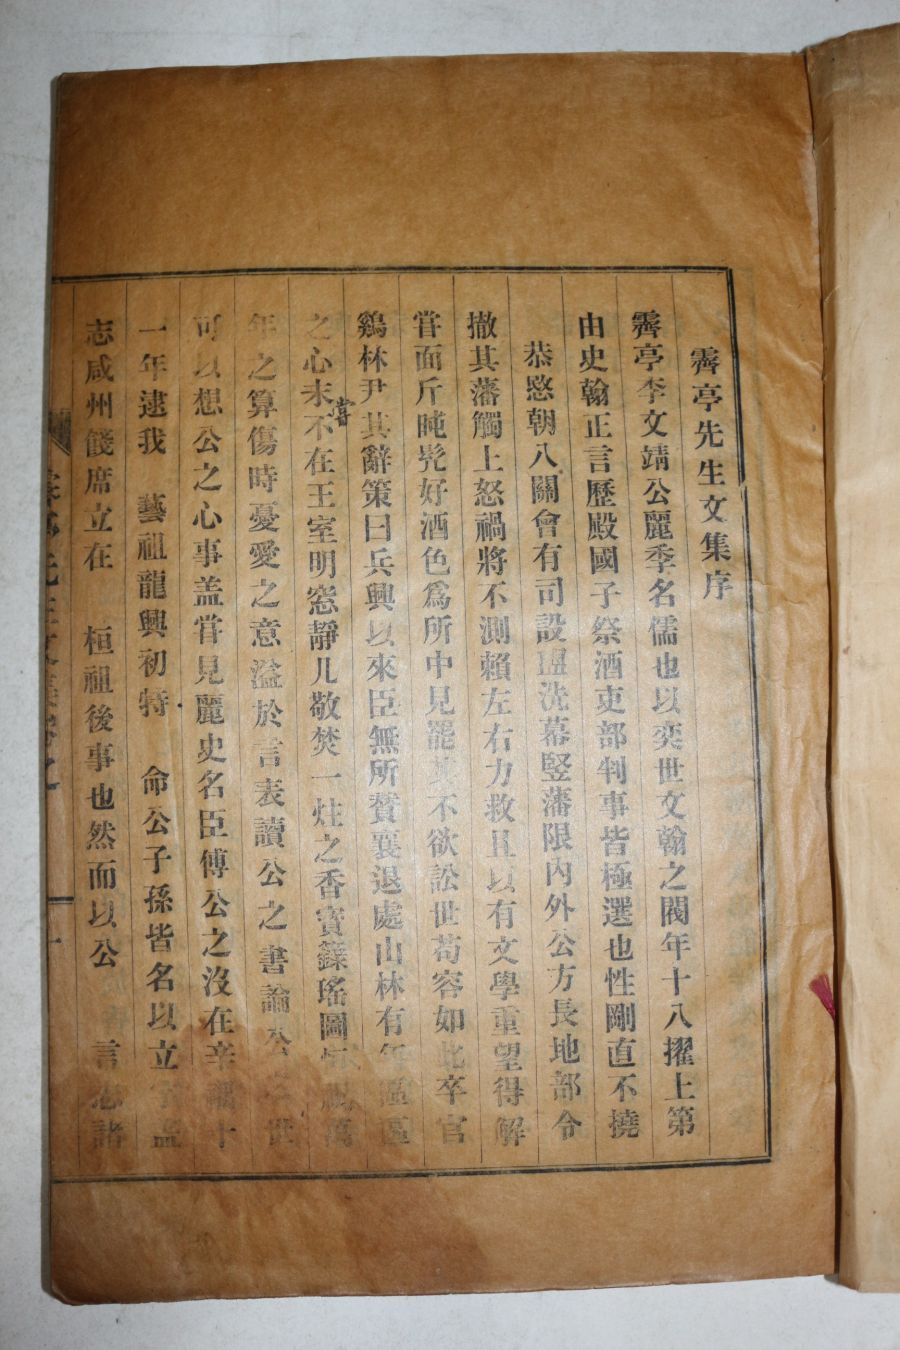 霽亭先生文集序
霽亭李文靖公麗季名儒也以奕世文翰之閥年十八擢上第
由史翰正言歷殿國子祭酒吏部判事皆極選也性剛直不撓
恭愍朝八關會有司設盥洗幕竪藩限內外公方長地部令
撤其藩觸上怒禍將不測賴左右力救且以有文學重望得解
甞面斥旽髡好酒色爲所中見罷 不欲訟世苟容如此卒官
鷄林尹其辭策曰兵興以來臣無所贊襄退處山林有年區區
之心未甞不在王室明窓靜几敬焚一炷之香寶籙瑤圖 萬
年之算傷時憂愛之意溢於言表讀公之書論公 世
可以想公之心事盖甞見麗史名臣傳公之沒在辛 十
一年逮我 藝祖龍興初特 命公子孫皆名以立 盖
志咸州餞席立在 桓祖後事也然而以公 言 諸